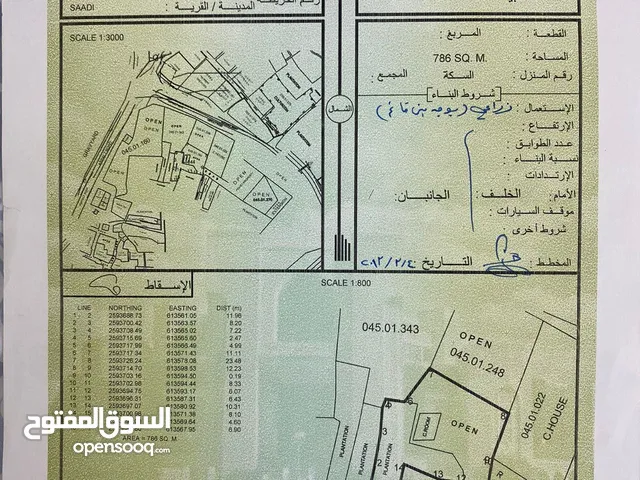 SAADI
المدينة / القرية :
SCALE 1:3000
OPEN
045.01.160
GRAVEYARD
OPEN
045.01.270
الشمال
القطعة :
المربع :
المساحة :
786 SQ. M.
رقم المنزل :
السكة
المجمع :
شروط البناء
الإستعمال :
زراعي
الإرتفاع :
عدد الطوابق :
نسبة البناء :
الإرتدادات :
الأمام :
الخلف :
الجانبان :
موقف السيارات :
شروط أخرى
المخطط :
التاريخ :
الإسقاط
SCALE 1:800
LINE NORTHING EASTING DIST (m)
1 2 2593688.73 613561.05 11.98
2 3 2593700.42 613563.57 8.20
3 4 2593708.49 613565.02 7.22
4 5 2593715.69 613565.60 2.47
5 6 2593717.99 613566.49 4.99
6 7 2593717.34 613571.43 11.11
7 8 2593726.24 613578.08 23.48
8 9 2593714.70 613598.53 12.23
9 10 2593703.16 613594.50 0.19
10 11 2593702.98 613594.44 8.33
11 12 2593694.75 613593.17 7.01
2593696.31 613586.31 6.43
2593697.07 613580.92 10.31
613571.38 8.10
613569.84 4.60
613567.95 8.90
AREA = 786 SQ. M.
045.01.343
OPEN
045.01.248
045.01.022
C.HOUSE
OPEN
C.ROOM
PLANTATION
PLANTATION
PLANTATION
السوق المفتوح
opensooq.com